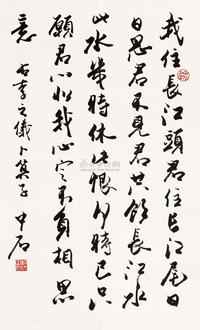 我住長江頭君住长江尾日
日思君不見君共飲長江水
此水幾時休此恨何時已只
願君心似我心定不負相思
意 右李之儀卜算子 中石